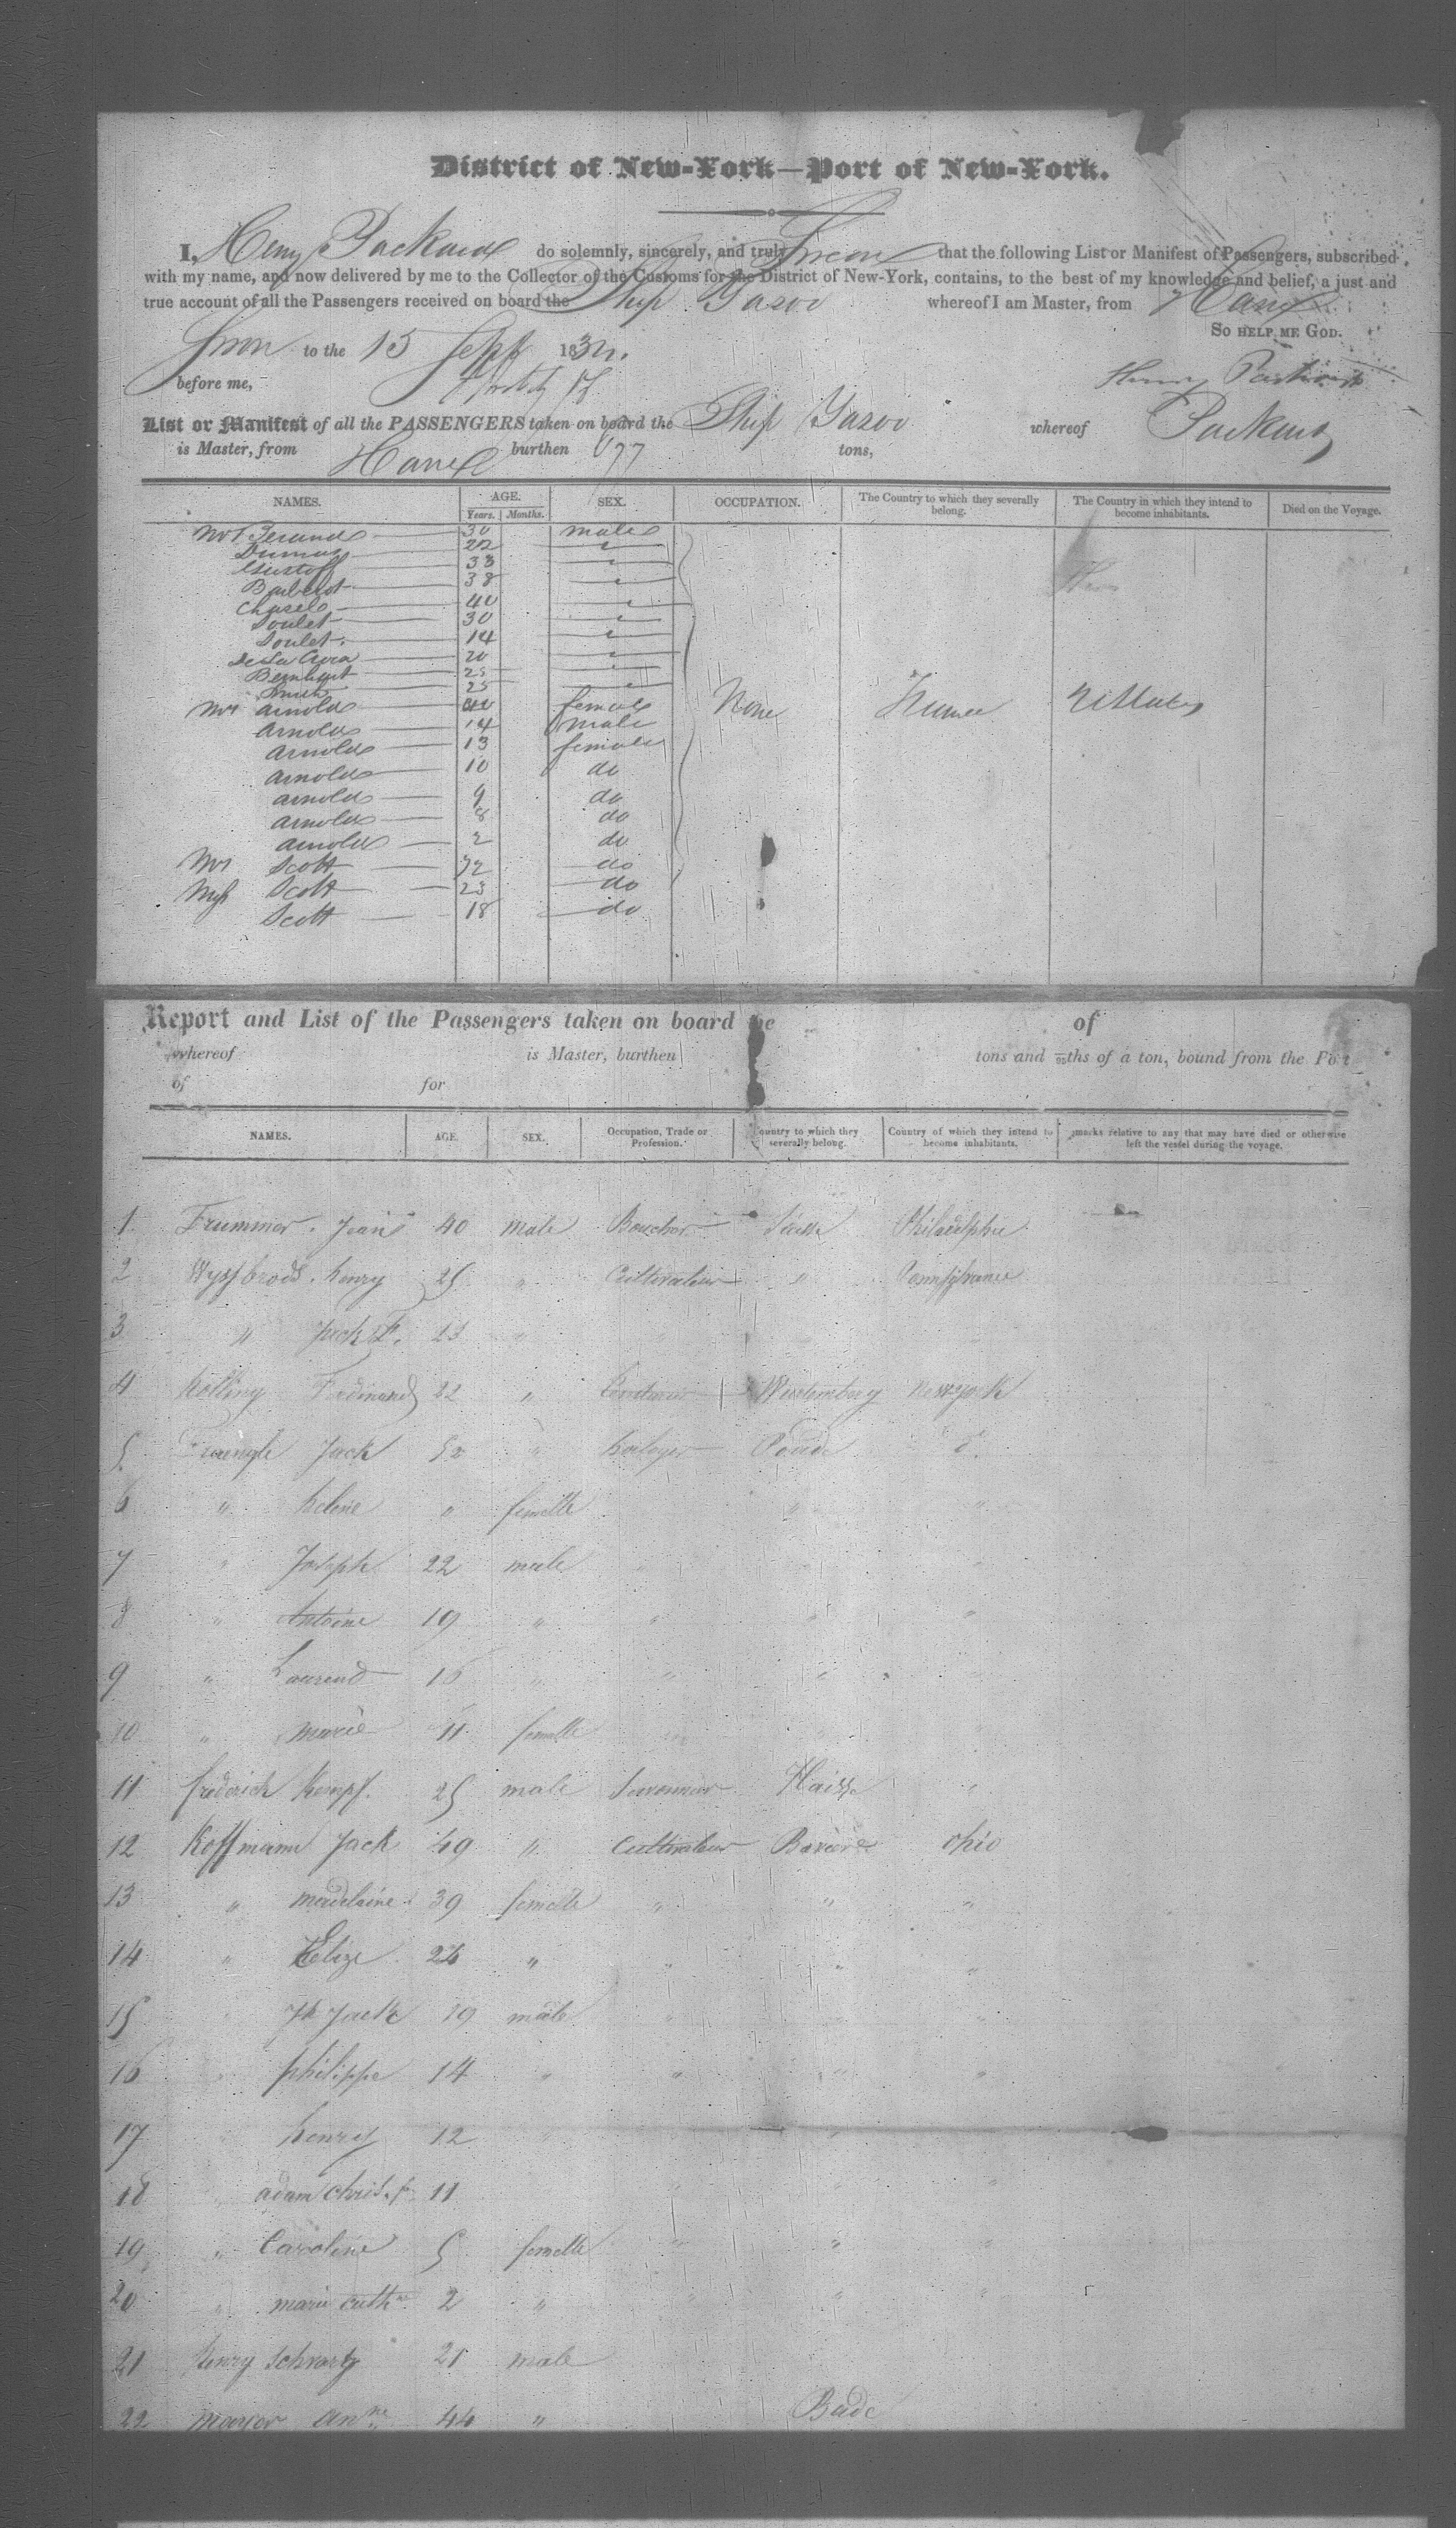 District of New-York—Port of New-York.
I, Henry Packard do solemnly, sincerely, and truly Swear that the following List or Manifest of Passengers, subscribed
with my name, and now delivered by me to the Collector of the Customs for the District of New-York, contains, to the best of my knowledge and belief, a just and
true account of all the Passengers received on board the Ship Yazoo whereof I am Master, from Havre
So help me God.
Sworn to the 15 Sept 183
before me, Henry Packard
List or Manifest of all the PASSENGERS taken on board the Ship Yazoo whereof Packard
is Master, from Havre burthen 677 tons,
NAMES. AGE. SEX. OCCUPATION. The Country to which they severally belong. The Country in which they intend to become inhabitants. Died on the Voyage.
Years. Months.
30 male
Dumas 22 "
33 "
38 "
40 "
Soulet 30 "
Soulet 14 "
20 "
Bernhart 25 "
Smith 25 "
Mrs Arnold 40 female None France U States
Arnold 14 male
Arnold 13 female
Arnold 10 do
Arnold 9 do
Arnold 8 do
Arnold 2 do
Mrs Scott do
Miss Scott 23 do
Scott 18 do
Report and List of the Passengers taken on board the of
whereof is Master, burthen tons and 95ths of a ton, bound from the Port
of for
NAMES. AGE. SEX. Occupation, Trade or Profession. Country to which they severally belong. Country of which they intend to become inhabitants. marks relative to any that may have died or otherwise left the vessel during the voyage.
1 Frummer. Jean 40 male Boucher Suisse Philadelphie
2 henry 25 " Cultivateur " Pensylvanie
3 " Jack F. 23 "
4 Kolling Ferdinand 22 " Wurtemberg Newyork
5 Jack 52 " horloger
6 " helene " femelle " "
7 " Joseph 22 male "
8 " Antoine 19 " " " "
9 " Laurend 16 " " "
10 " marie 11 femelle
11 frederick Kempf. 25 male "
12 Koffmann Jack 49 " Cultivateur Baviere ohio
13 " madelaine 39 femelle " " "
14 " Elize 24 " " " "
15 " Jh Jack 19 male " "
16 " philippe 14 " " " "
17 " henry 12 " "
18 " adam 11 " "
19 " Caroline 5 femelle " " "
20 " marie cathne 2 " " " "
21 henry Schvartz 21 male
22 mayor anne 44 " Bade